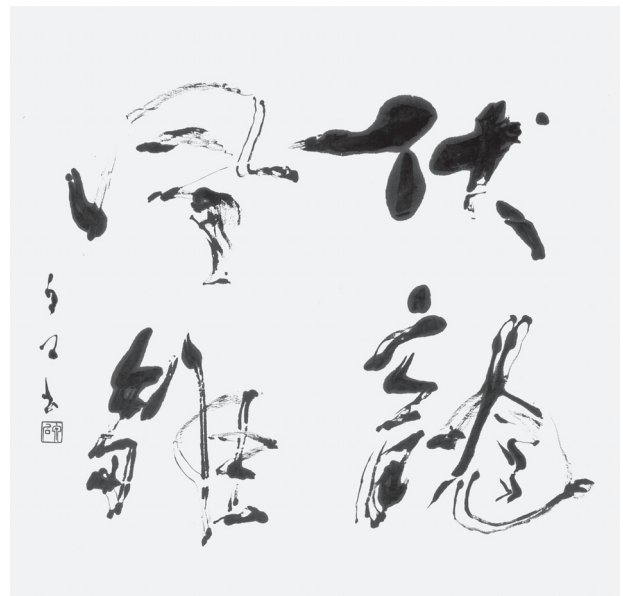 伏龍
鳳雛